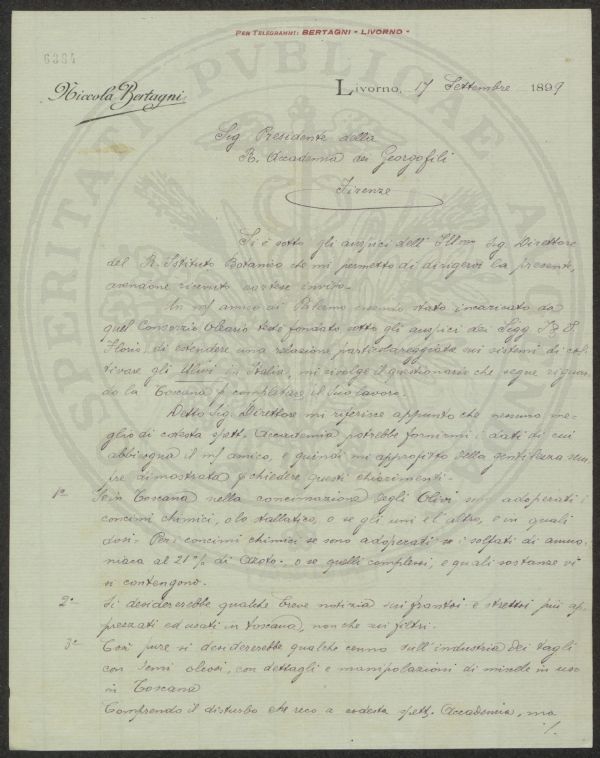 PER TELEGRAMMI: BERTAGNI - LIVORNO -
6364
Niccola Bertagni
Livorno, 17 Settembre 1899
Sig Presidente della
R. Accademia dei Georgofili
Firenze
Si è sotto gli auspici dell' Illmo Sig. Direttore
del R. Istituto Botanico che mi permetto di dirigerVi la presente,
avendone ricevuto cortese invito.-
Un mio amico di Palermo essendo stato incaricato da
quel Consorzio Oleario testè fondato sotto gli auspici dei Sigg I. & V.
Florio, di estendere una relazione particolareggiata sui sistemi di col-
tivare gli Ulivi in Italia, mi rivolge il questionario che segue riguar-
do la Toscana p completare il suo lavoro.
Detto Sig. Direttore mi riferisce appunto che nessuno me-
glio di codesta spett. Accademia potrebbe fornirmi i dati di cui
abbisogna il mio amico, e quindi mi approfitto della gentilezza sem-
pre dimostrata p chiedere questi chiarimenti.-
1º Se in Toscana nella concimazione degli Olivi sono adoperati i
concimi chimici, o lo stallatico, o se gli uni e l'altro, e in quali
dosi.- Per i concimi chimici se sono adoperati i solfati di ammo-
niaca al 21% di Azoto.- o se quelli complessi, e quali sostanze vi
si contengono.
2º Si desidererebbe qualche breve notizia sui frantoi e strettoi più ap-
prezzati ed usati in toscana, non che sui filtri.
3º Così pure si desidererebbe qualche cenno sull'industria dei tagli
con semi oleosi, con dettagli e manipolazioni di miscele in uso
in Toscana
Comprendo il disturbo che reco a codesta spett. Accademia, ma
./.